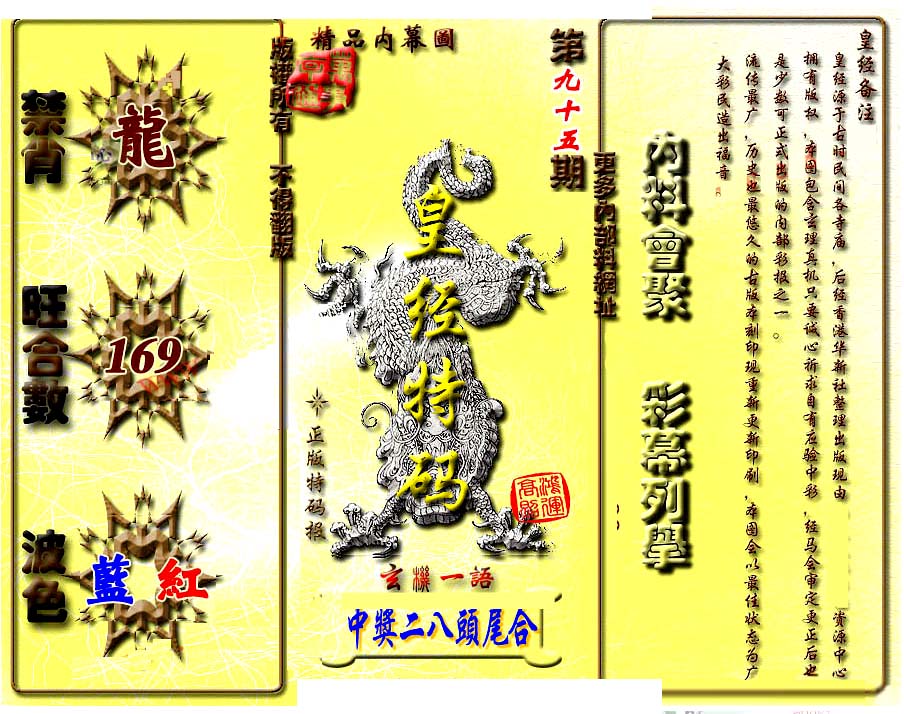 皇经备注
皇经源于古时民间各寺庙，后经香港华新社整理出版现由 资源中心
拥有版权，本图包含玄理真机只要诚心祈求自有应验中彩，经马会审定更正后也
是少数可正式出版的内部彩报之一。
流传最广，历史也最悠久的古版本刻印现重新更新印刷，本图会以最佳状态为广
大彩民造出福音
内料會聚 彩幕列舉
更多內部料網址
第九十五期
精品内幕圖
皇经特码
正版特码报
鴻運高照
玄機一語
中獎二八頭尾合
版權所有 不得翻版
禁肖
龍
旺合數
169
波色
藍 紅